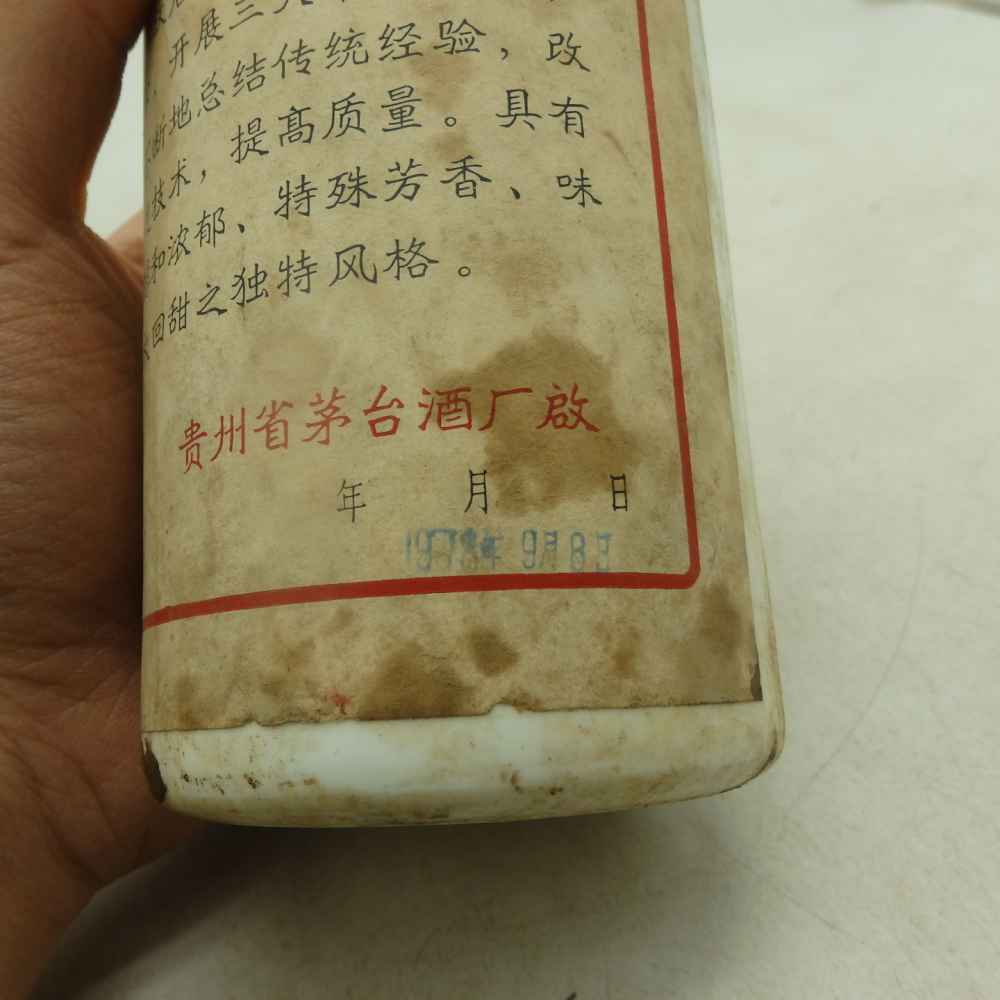 开展三大
断地总结传统经验，改
技术，提高质量。具有
和浓郁、特殊芳香、味
回甜之独特风格。
贵州省茅台酒厂啟
年 月 日
年 9月8日